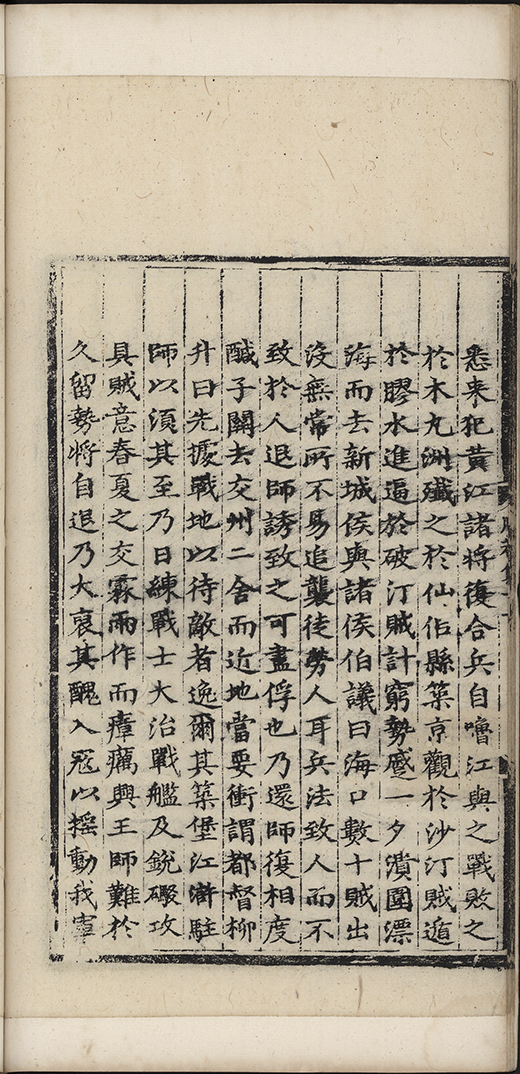 悉来犯黄江諸將復合兵自嚕江與之戰敗之
於木丸洲殲之於仙侣縣築京觀於沙汀賊遁
於膠水進逼於破汀賊計窮勢蹙一夕潰圍漂
海而去新城侯與諸侯伯議曰海口數十賊出
沒無常所不易追襲徒勞人耳兵法致人而不
致於人退師誘致之可盡俘也乃還師復相度
醎子關去交州二舍而近地當要衝謂都督柳
升曰先據戰地以待敵者逸爾其築堡江滸駐
師以須其至乃日練戰士大治戰艦及銃礮攻
具賊意春夏之交霖雨作而瘴癘興王師難於
久留勢將自退乃大裒其醜入冦以揺動我軍